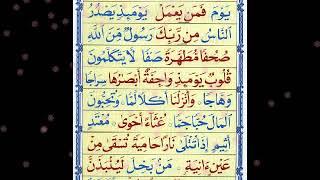 يَوْمَ فَمَنْ يَعْمَلْ يَوْمَىِٕذٍ يَصْدُرُ
النَّاسُ مِنْ رَّبِّكَ رَسُولٌ مِّنَ اللّٰهِ
صُحُفًا مُّطَهَّرَةً صَفًّا لَّا يَتَكَلَّمُونَ
قُلُوبٌ يَّوْمَىِٕذٍ وَّاجِفَةٌ اَبْصَارُهَا سِرَاجًا
وَّهَّاجًا وَّاَنْزَلْنَا اَكْلًا لَّمًّا وَّتُحِبُّونَ
الْمَالَ حُبًّا جَمًّا غُثَآءً اَحْوٰى مُعْتَدٍ
اَثِيْمٍ اِذَا تُتْلٰى نَارًا حَامِيَةً تُسْقٰى مِنْ
عَيْنٍ اٰنِيَةٍ مَنْۢ بَخِلَ لَيُنْۢبَذَنَّ